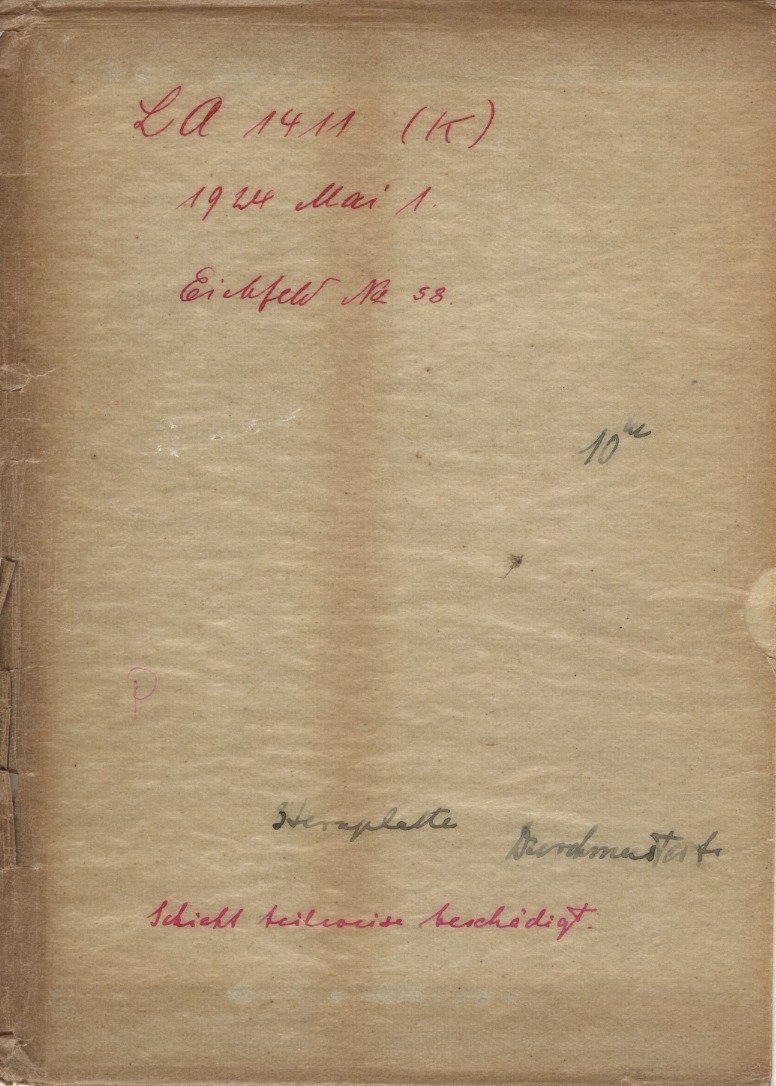 LA 1411 (K)
1924 Mai 1.
Eichfeld No 58.
10
P
Sternplatte
Durchmustert.
Schicht teilweise beschädigt.